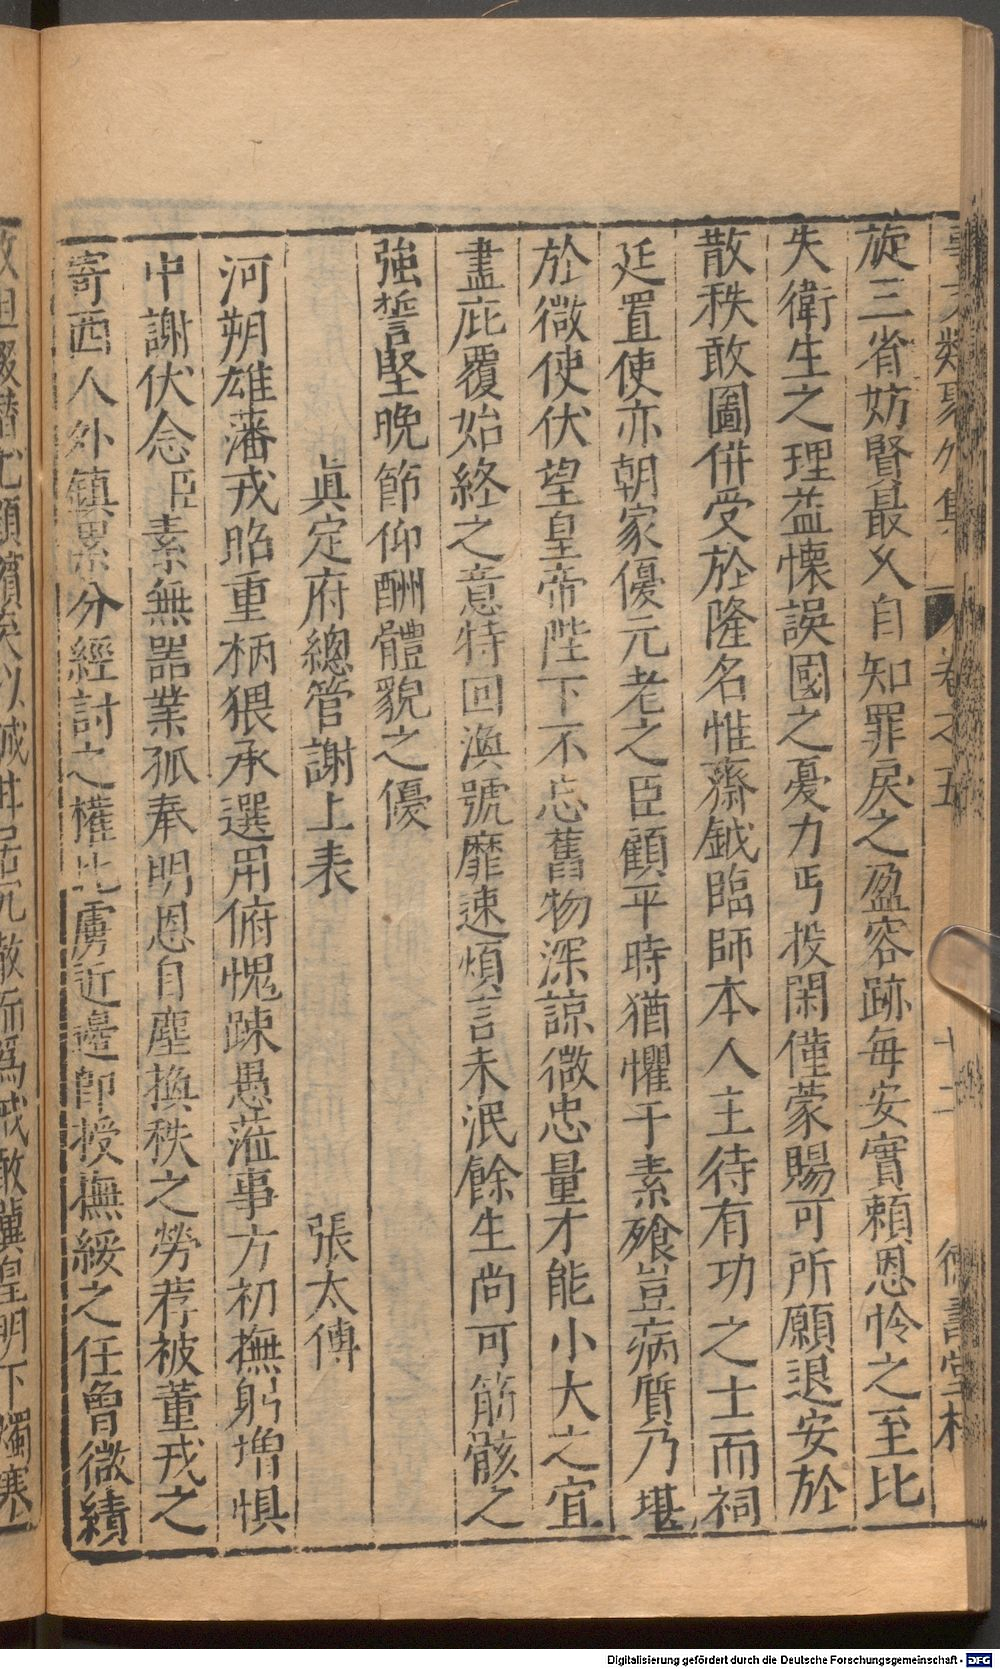 事文類聚外集 卷之五 十二 德壽堂梓
旋三省妨賢最久自知罪戾之盈容跡每安實賴恩怜之至比
失衛生之理益懐誤國之憂力丐投閑僅蒙賜可所願退安於
散秩敢圖併受於隆名惟齋鉞臨師本人主待有功之士而祠
廷置使亦朝家優元老之臣顧平時猶懼于素飱豈病質乃堪
於微使伏望皇帝陛下不忘舊物深諒微忠量才能小大之宜
盡庇覆始終之意特回渙號靡速煩言未泯餘生尚可筋骸之
強誓堅晚節仰酬體貌之優
真定府總管謝上表 張太傅
河朔雄藩戎昭重柄猥承選用俯愧踈愚蒞事方初撫躬增惧
中謝伏念臣素無噐業孤奉明恩自塵換秩之勞荐被董戎之
寄西人外鎮累分經討之權北虜近邊即授撫綏之任曾微績
明下燭寒
Digitalisierung gefördert durch die Deutsche Forschungsgemeinschaft - DFG